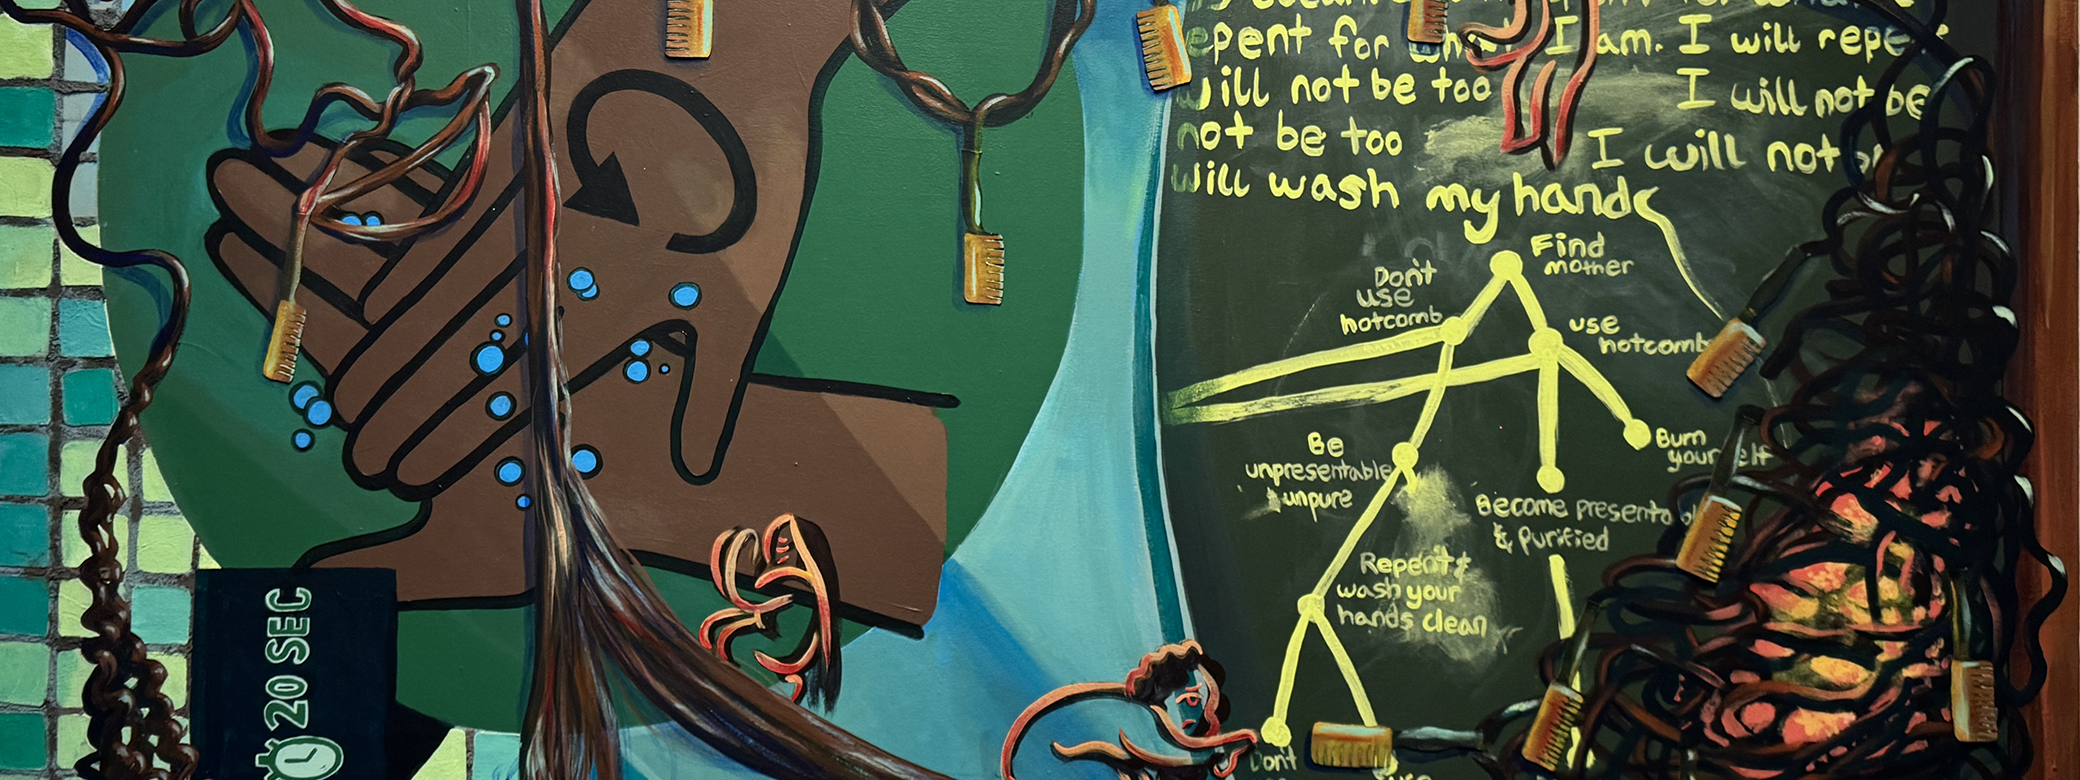 epent for what I am. I will repe
will not be too I will not be
not be too I will not
will wash my hands
Find
mother
Don't
use
hotcomb
use
hotcomb
Be
unpresentable
& unpure
Burn
yourself
Become presentabl
& purified
Repent &
wash your
hands clean
20 SEC
Dont